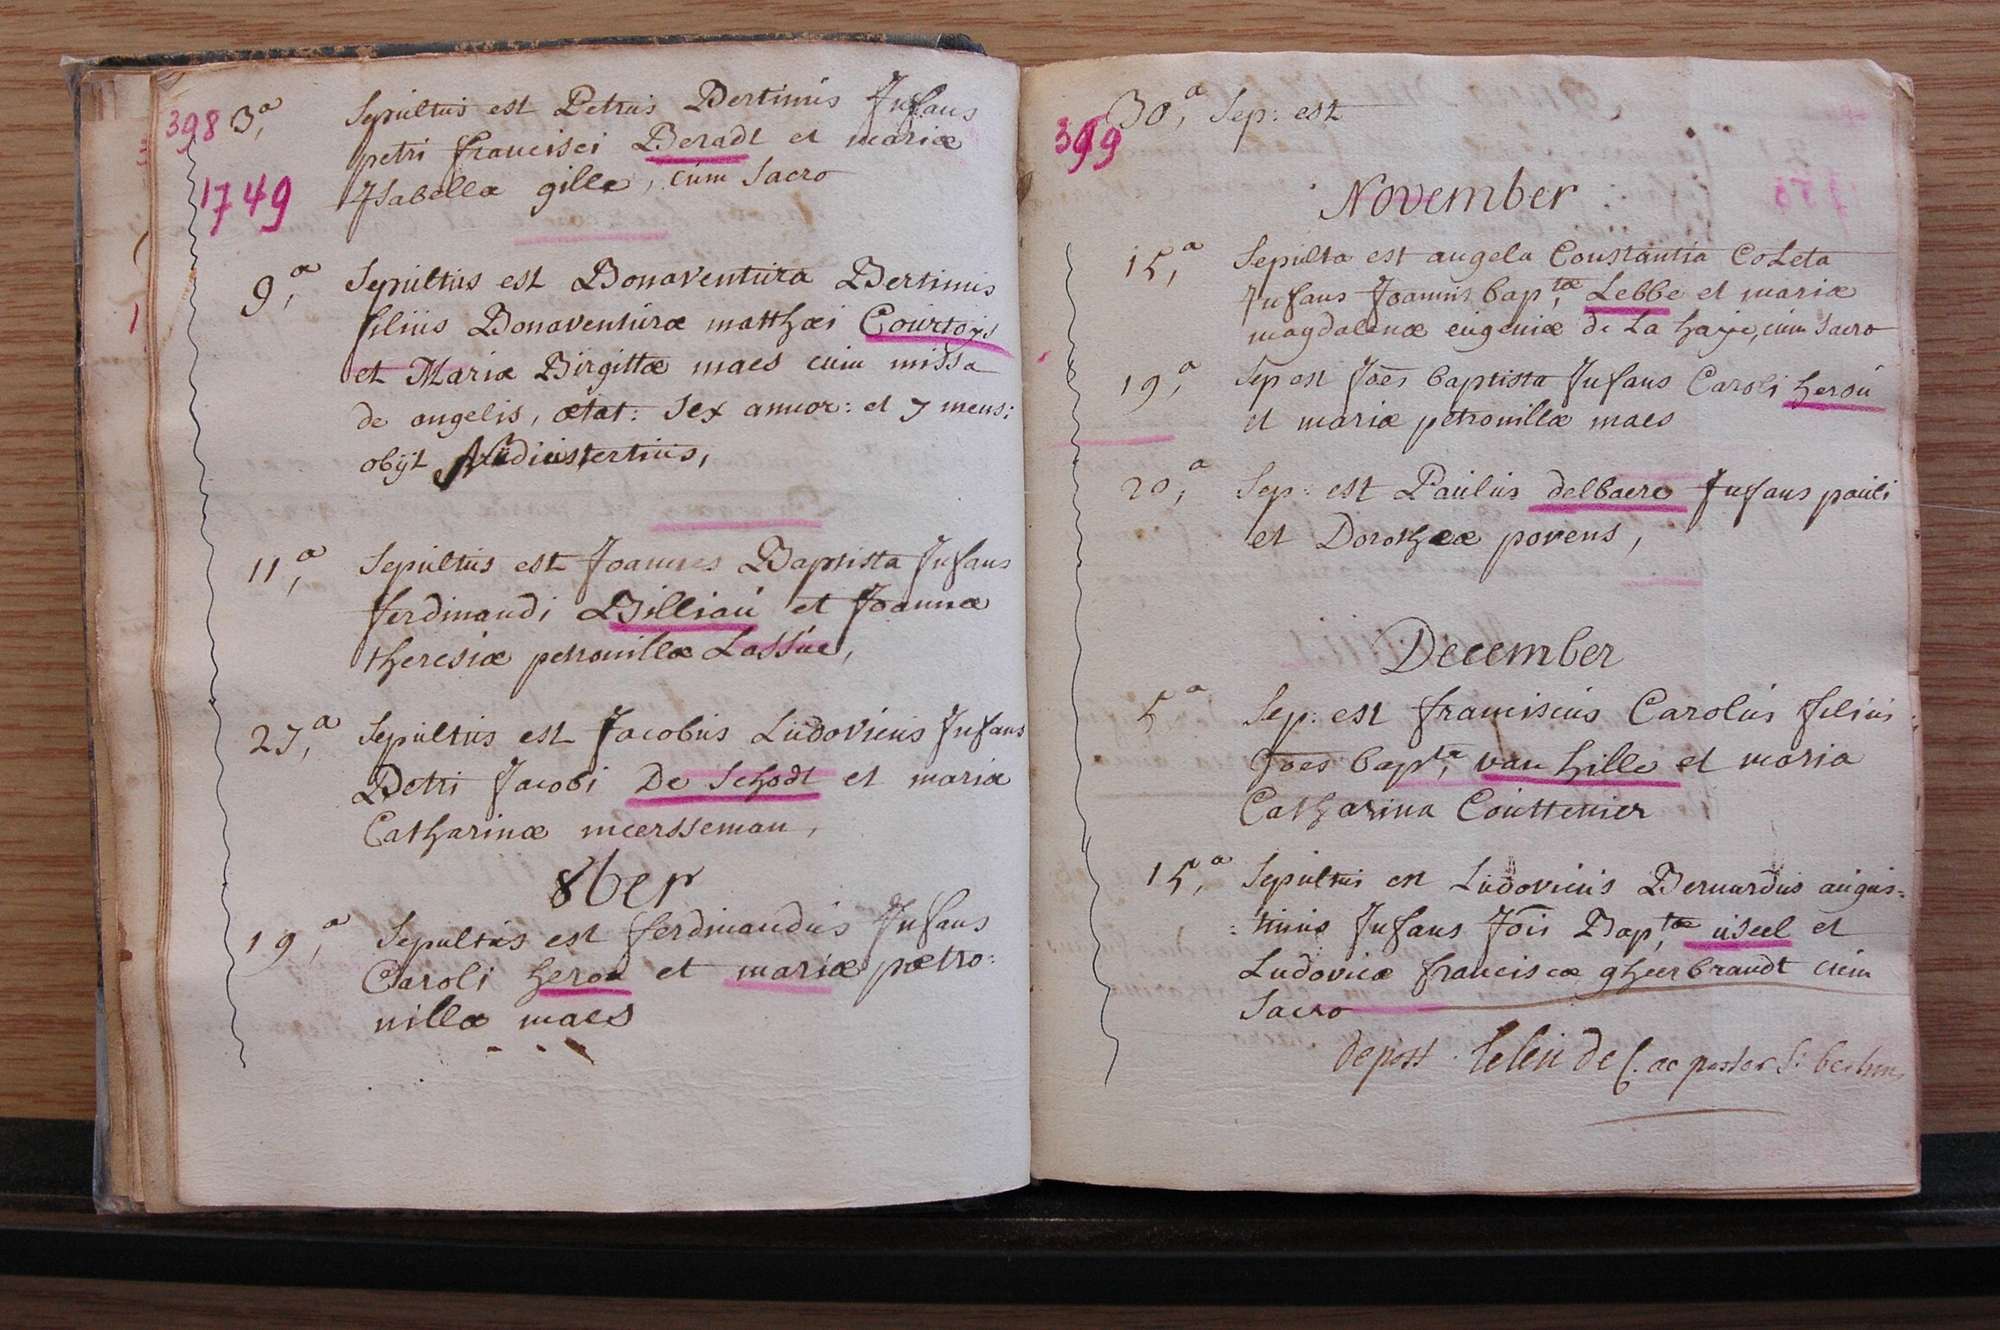 398
1749
3,a Sepultus est Petrus Bertinus Infans
petri francisci Beradt et mariæ
Isabellæ gille, cum sacro
9,a Sepultus est Bonaventura Bertinus
filius Bonaventuræ matthæi Courtoijs
et Mariæ Birgittæ maes cum missa
de angelis, ætat: sex annor: et 7 mens:
obijt Nudiustertius,
11,a Sepultus est Joannes Baptista Infans
ferdinandi Billiau et Joannæ
theresiæ petronillæ Lassue,
27,a Sepultus est Jacobus Ludovicus Infans
Petri Jacobi De Schodt et maria
Catharinæ meersseman,
8ber
19,a Sepultus est ferdinandus Infans
Caroli herou et mariæ pætro:
nillæ maes
399
30,a Sep: est
November
15,a Sepulta est angela Constantia Coleta
Infans Joannis bap,tæ Lebbe et mariæ
magdalenæ eugeniæ de La haije, cum sacro
19,a Sep est Joes baptista Infans Caroli herou
et mariæ petronillæ maes
20,a Sep: est Paulus delbaere Infans pauli
et Dorotheæ povens,
December
5a Sep: est franciscus Carolus filius
Joes bap,ta van hille et maria
Catharina Couttenier
15,a Sepultus est Ludovicus Bernardus augus=
=tinus Infans Jois Bap,tæ useel et
Ludovicæ franciscæ gheerbrandt cum
sacro
de pastor S: